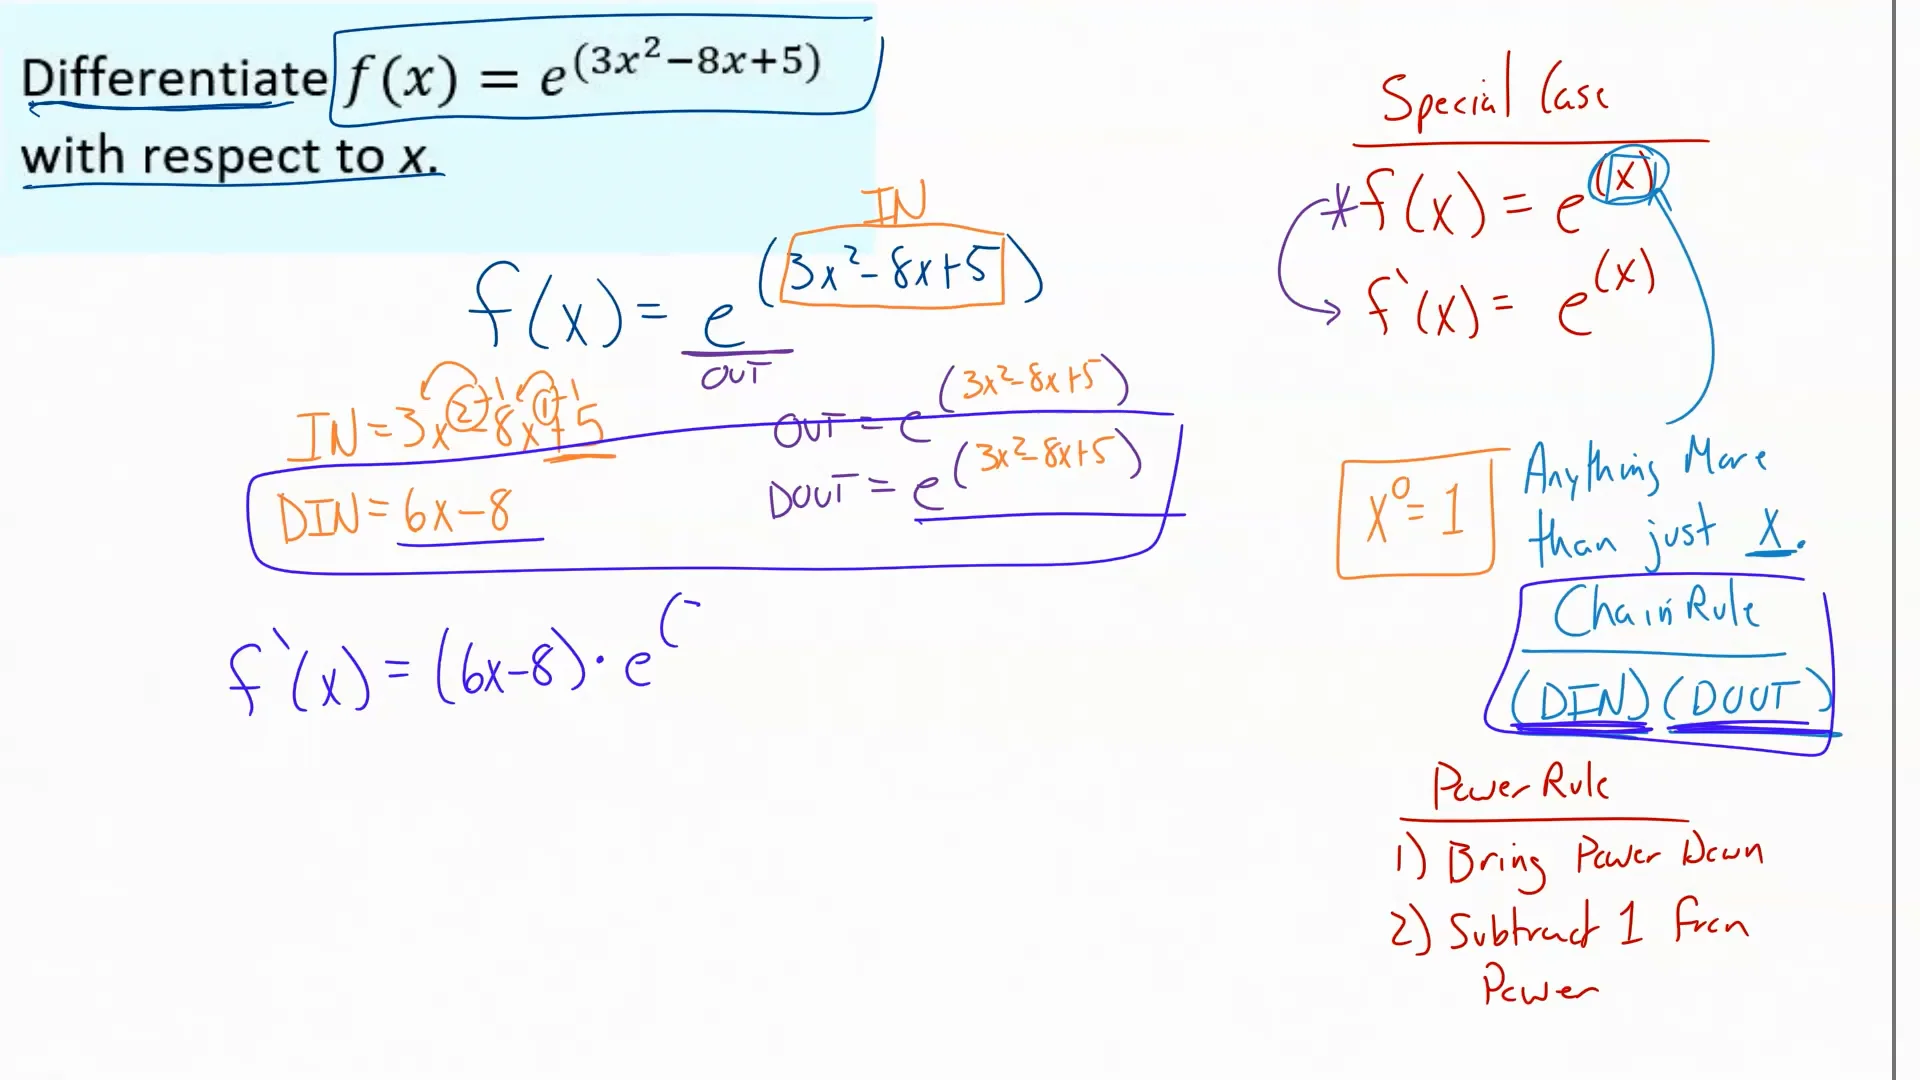 Differentiate f(x) = e^(3x²−8x+5)
with respect to x.
IN
f(x) = e^(3x²-8x+5)
OUT
IN = 3x^2-1 - 8x^1-1 + 5
DIN = 6x-8
OUT = e^(3x²-8x+5)
DOUT = e^(3x²-8x+5)
f`(x) = (6x-8) · e^(
Special Case
*f(x) = e^(x)
f`(x) = e^(x)
x⁰ = 1
Anything More
than just x.
Chain Rule
(DIN)(DOUT)
Power Rule
1) Bring Power Down
2) Subtract 1 from
Power